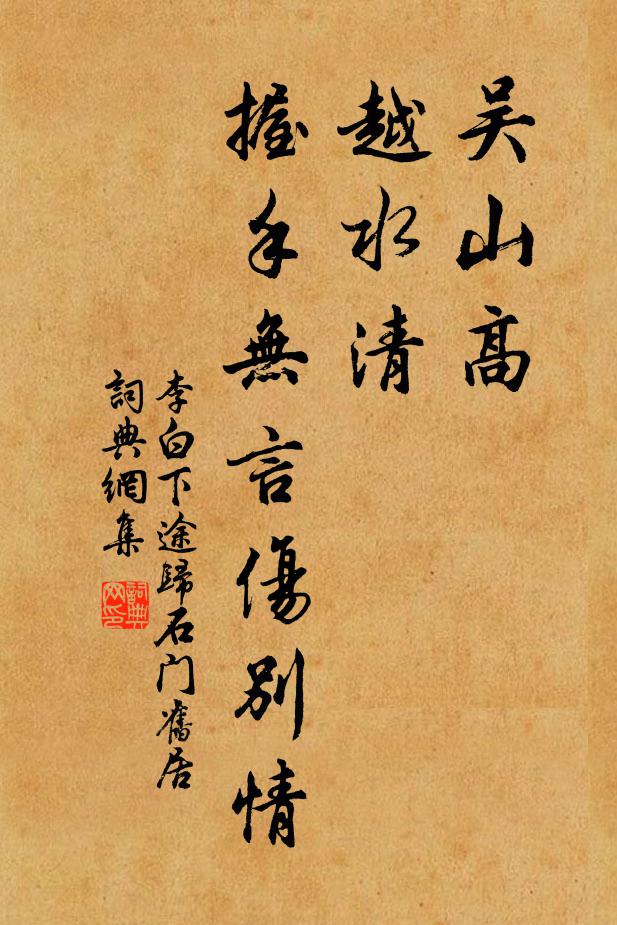 吴山高
越水清
握手無言傷別情
李白下途歸石门舊居
詞典網集
詞典網印